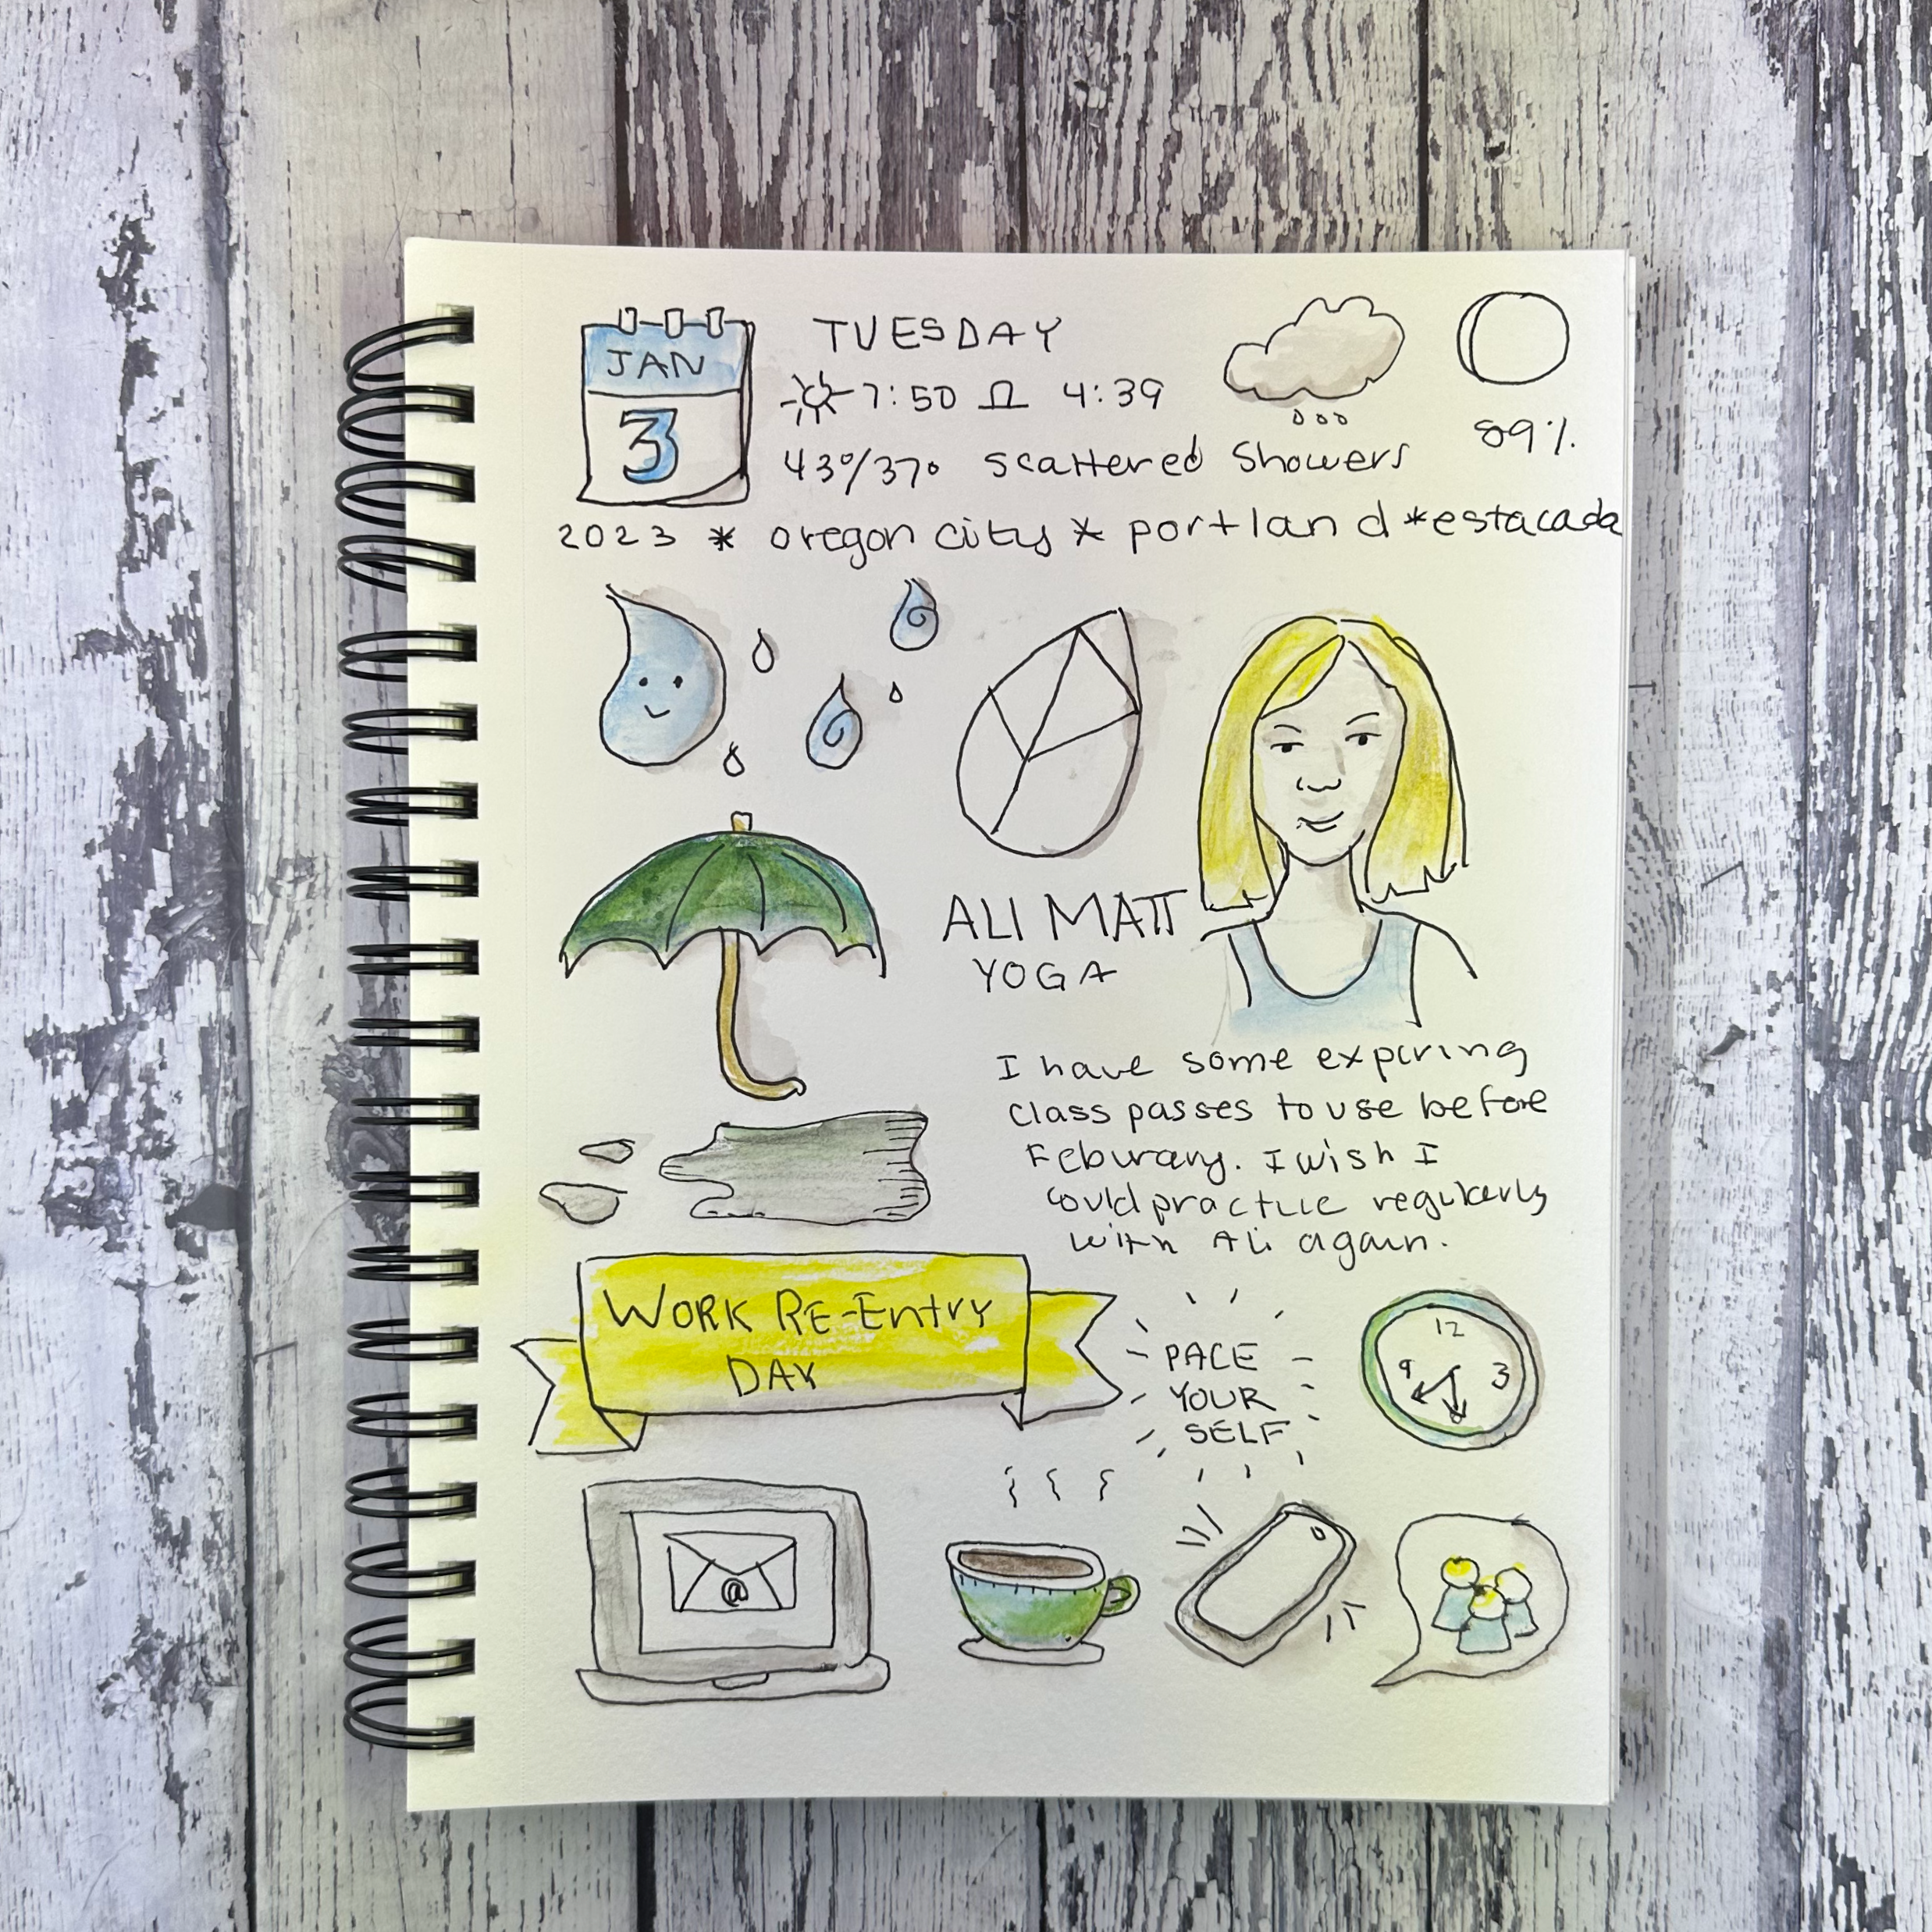 JAN
3
TUESDAY
7:50 4:39
43°/37° scattered Showers
89%
2023 * oregon city * portland *estacada
ALI MATT
YOGA
I have some expiring
class passes to use before
Feburary. I wish I
could practice regularly
with Ali again.
WORK RE-Entry
DAY
PACE
YOUR
SELF
12
9 3
6
@